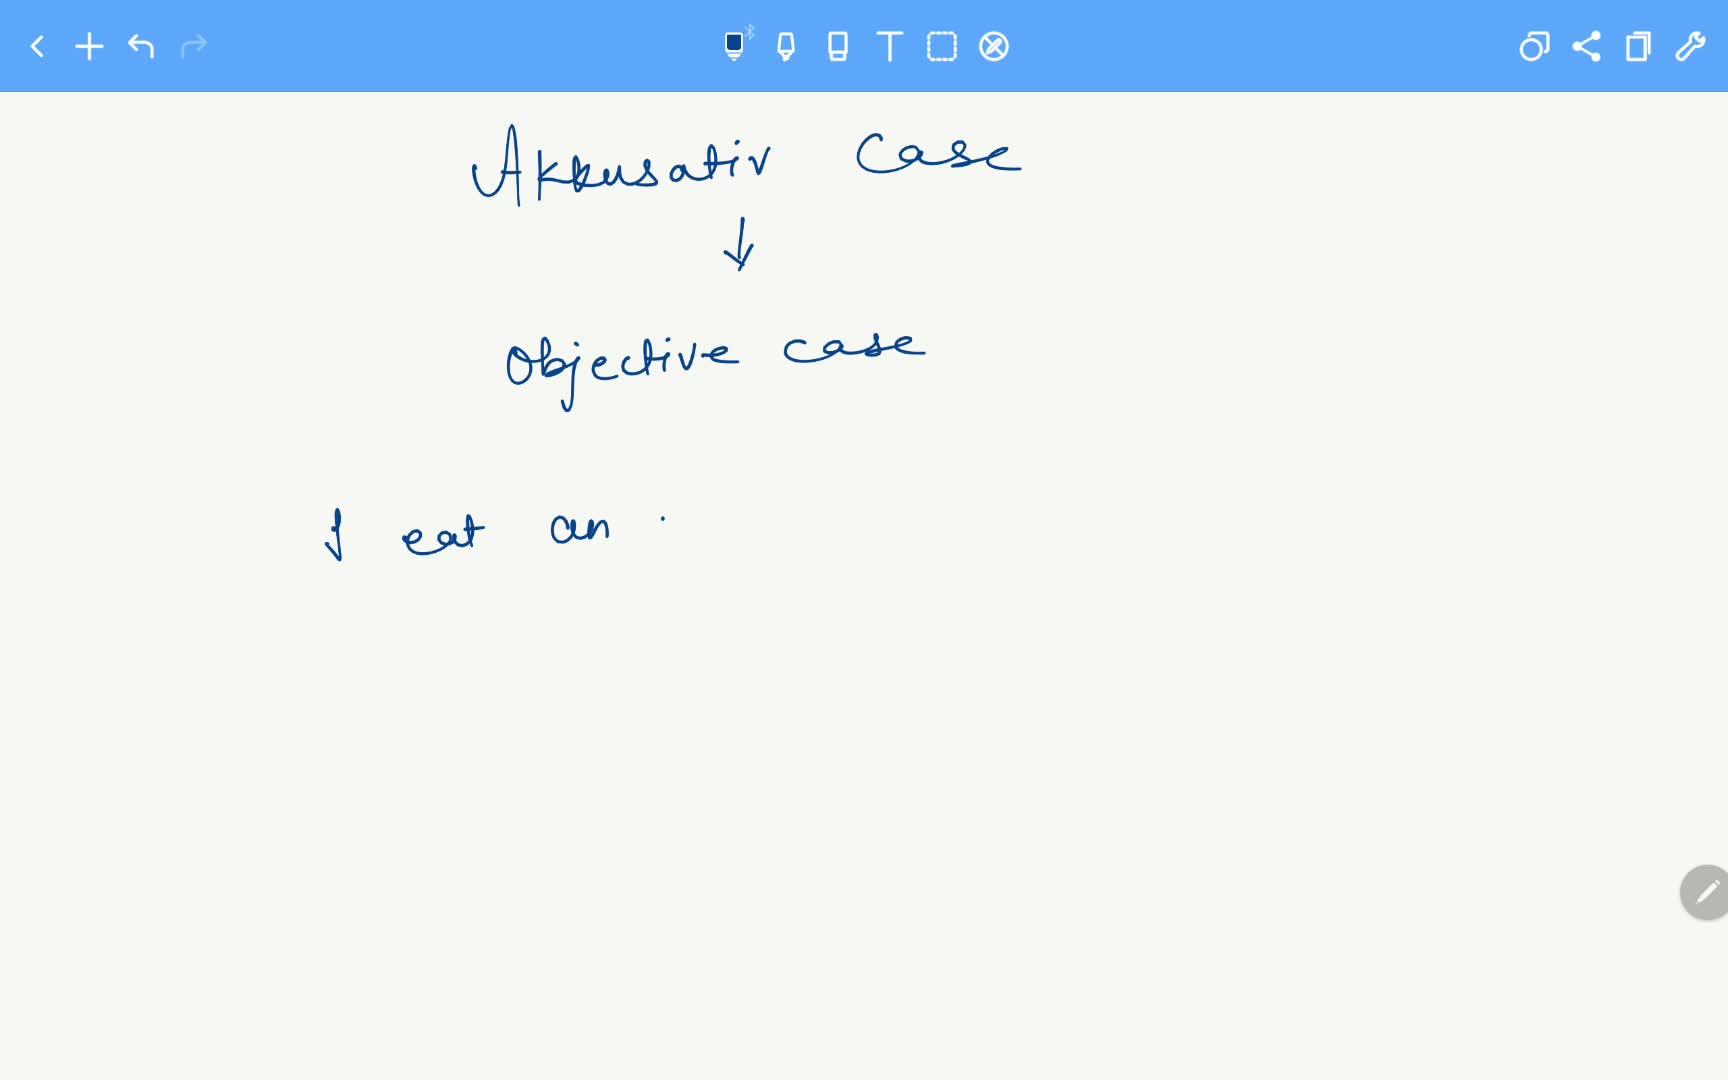 Akkusativ Case
Objective case
I eat an